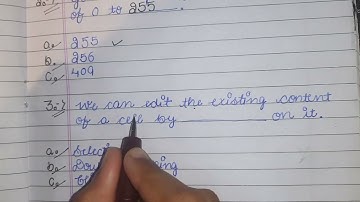 of 0 to 255.
a. 255 ✓
b. 256
c. 409
3. We can edit the existing content
of a cell by ________ on it.
a.
b.
c.